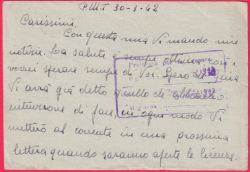 PM 30-3-42
Carissimi,
Con questa mia Vi mando mie
notizie. La salute è sempre
sperare sempre di Voi. Spero
Vi avrà già detto quello che
intenzione di fare, in ogni modo Vi
metterò al corrente in una prossima
lettera quando saranno aperte le licenze.